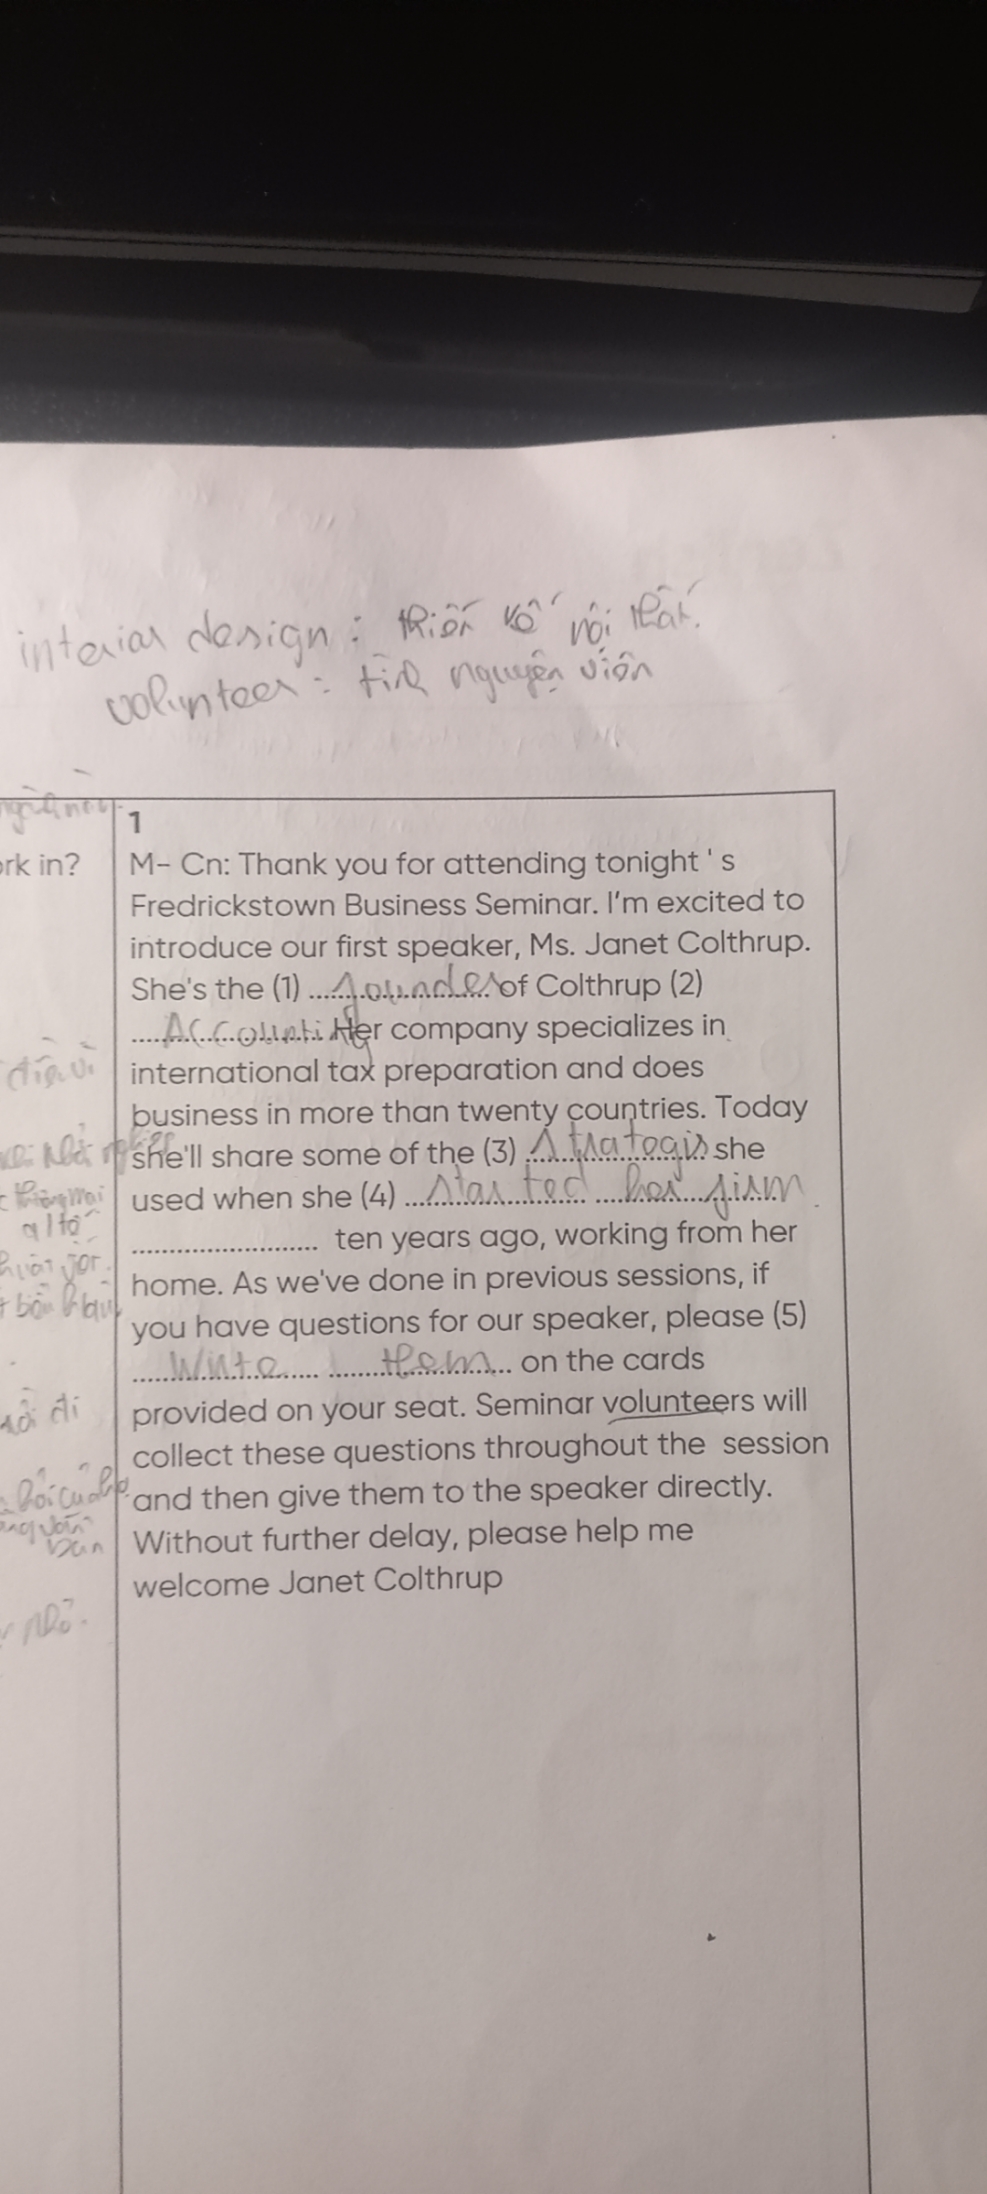 interior design : thiết kế nội thất.
volunteer : tình nguyện viên
1
rk in?
M- Cn: Thank you for attending tonight ' s
Fredrickstown Business Seminar. I'm excited to
introduce our first speaker, Ms. Janet Colthrup.
She's the (1) founder of Colthrup (2)
Accounting Her company specializes in
international tax preparation and does
business in more than twenty countries. Today
she'll share some of the (3) stratogis she
used when she (4) started her firm
ten years ago, working from her
home. As we've done in previous sessions, if
you have questions for our speaker, please (5)
write them on the cards
provided on your seat. Seminar volunteers will
collect these questions throughout the session
and then give them to the speaker directly.
Without further delay, please help me
welcome Janet Colthrup